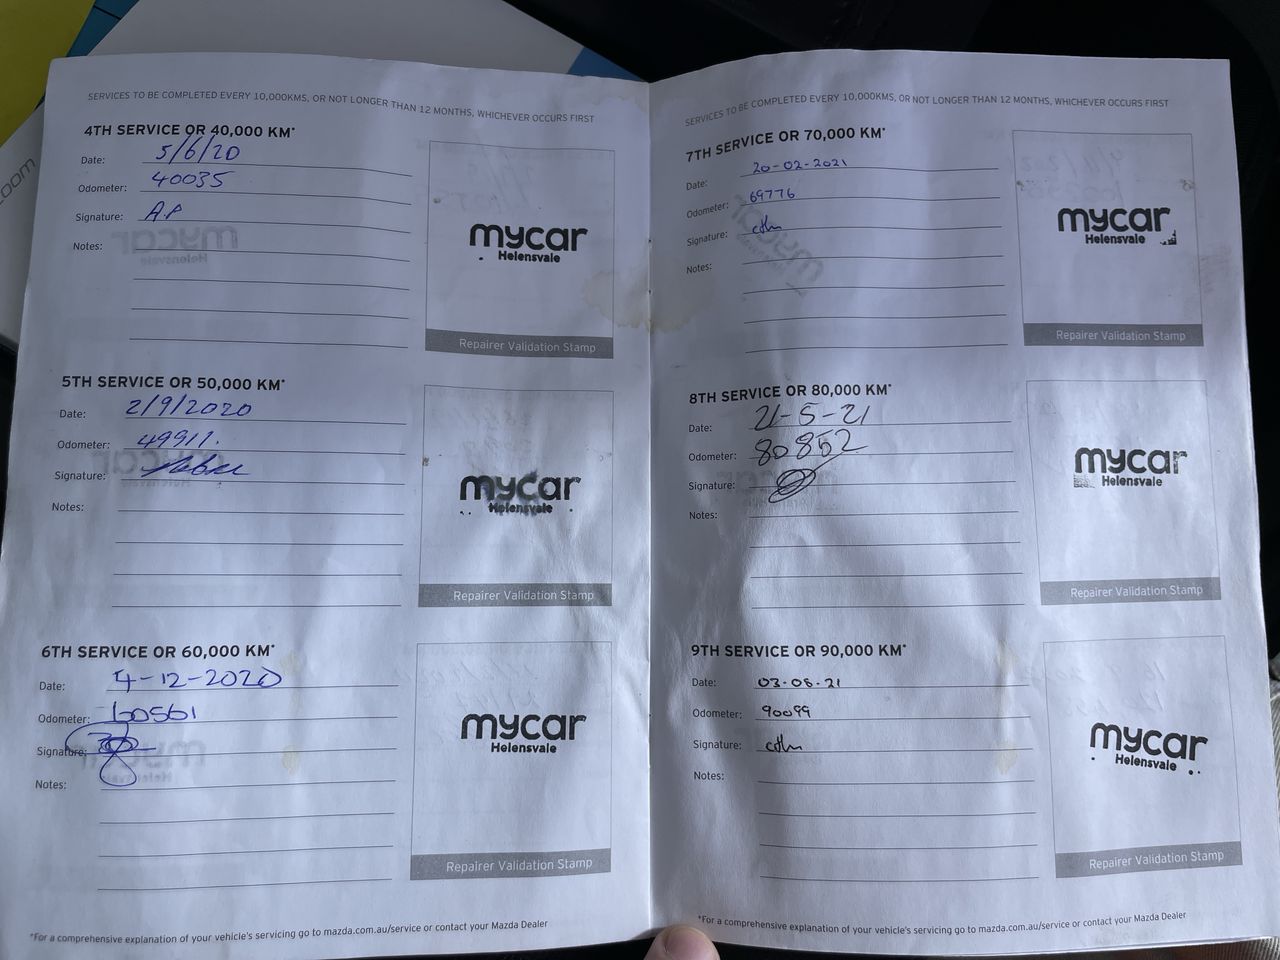 SERVICES TO BE COMPLETED EVERY 10,000KMS, OR NOT LONGER THAN 12 MONTHS, WHICHEVER OCCURS FIRST
4TH SERVICE OR 40,000 KM*
Date: 5/6/20
Odometer: 40035
Signature: A.P
Notes:
mycar
Helensvale
Repairer Validation Stamp
5TH SERVICE OR 50,000 KM*
Date: 2/9/2020
Odometer: 49911.
Signature:
Notes:
mycar
Helensvale
Repairer Validation Stamp
6TH SERVICE OR 60,000 KM*
Date: 4-12-2020
Odometer: 60561
Signature:
Notes:
mycar
Helensvale
Repairer Validation Stamp
*For a comprehensive explanation of your vehicle's servicing go to mazda.com.au/service or contact your Mazda Dealer
SERVICES TO BE COMPLETED EVERY 10,000KMS, OR NOT LONGER THAN 12 MONTHS, WHICHEVER OCCURS FIRST
7TH SERVICE OR 70,000 KM*
Date: 20-02-2021
Odometer: 69776
Signature:
Notes:
mycar
Helensvale
Repairer Validation Stamp
8TH SERVICE OR 80,000 KM*
Date: 21-5-21
Odometer: 80852
Signature:
Notes:
mycar
Helensvale
Repairer Validation Stamp
9TH SERVICE OR 90,000 KM*
Date: 03-08-21
Odometer: 90099
Signature:
Notes:
mycar
Helensvale
Repairer Validation Stamp
*For a comprehensive explanation of your vehicle's servicing go to mazda.com.au/service or contact your Mazda Dealer